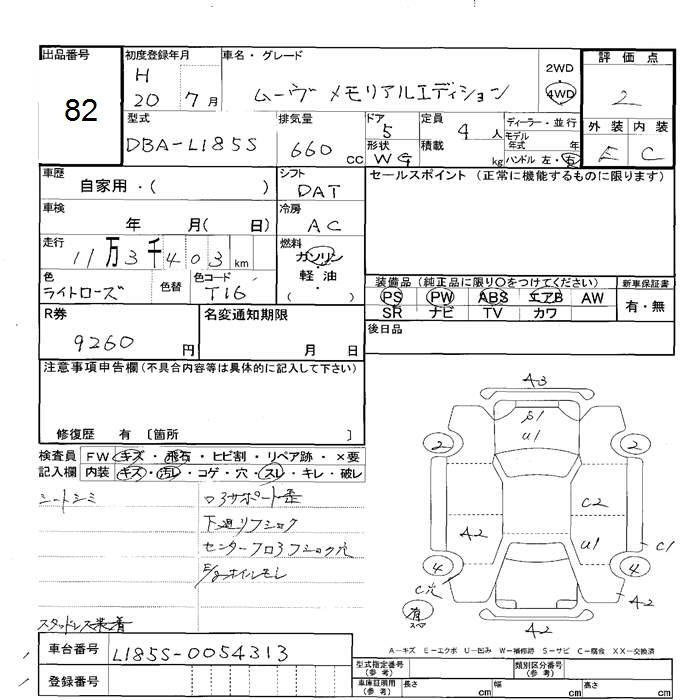 出品番号
82
初度登録年月
H
20 7月
車名・グレード
ムーヴ メモリアルエディション
2WD
4WD
評価点
2
型式
DBA-L185S
排気量
660 cc
ドア
5
形状
W
定員
4人
積載
kg
ディーラー・並行
モデル
年式 年
ハンドル 左・右
外装 内装
E C
車歴
自家用・( )
シフト
DAT
セールスポイント (正常に機能するものに限ります)
車検
年 月( 日)
冷房
AC
走行
11万3千403km
燃料
ガソリン
軽油
( ・ )
色
ライトローズ
色替
色コード
T16
装備品 (純正品に限り○をつけてください)
PS PW ABS エアB AW
SR ナビ TV カワ
新車保証書
有・無
R券
9260円
名変通知期限
月 日
後日品
注意事項申告欄(不具合内容等は具体的に記入して下さい)
修復歴 有 〔箇所 〕
検査員 FW キズ・飛石・ヒビ割・リペア跡・×要
記入欄 内装 キズ・汚れ・コゲ・穴・スレ・キレ・破レ
シートシミ
ロアサポート歪
下廻りフショク
スタッドレス装着
A3
S1
U1
2
2
C2
A2
U1
C1
4
4
C穴
A2
有
スペア
A2
A-キズ E-エクボ U-凹み W-補修跡 S-サビ C-腐食 XX-交換済
車台番号
L185S-0054313
登録番号
型式指定番号
(参考)
類別区分番号
(参考)
車庫証明用
(参考)
長さ cm
幅 cm
高さ cm